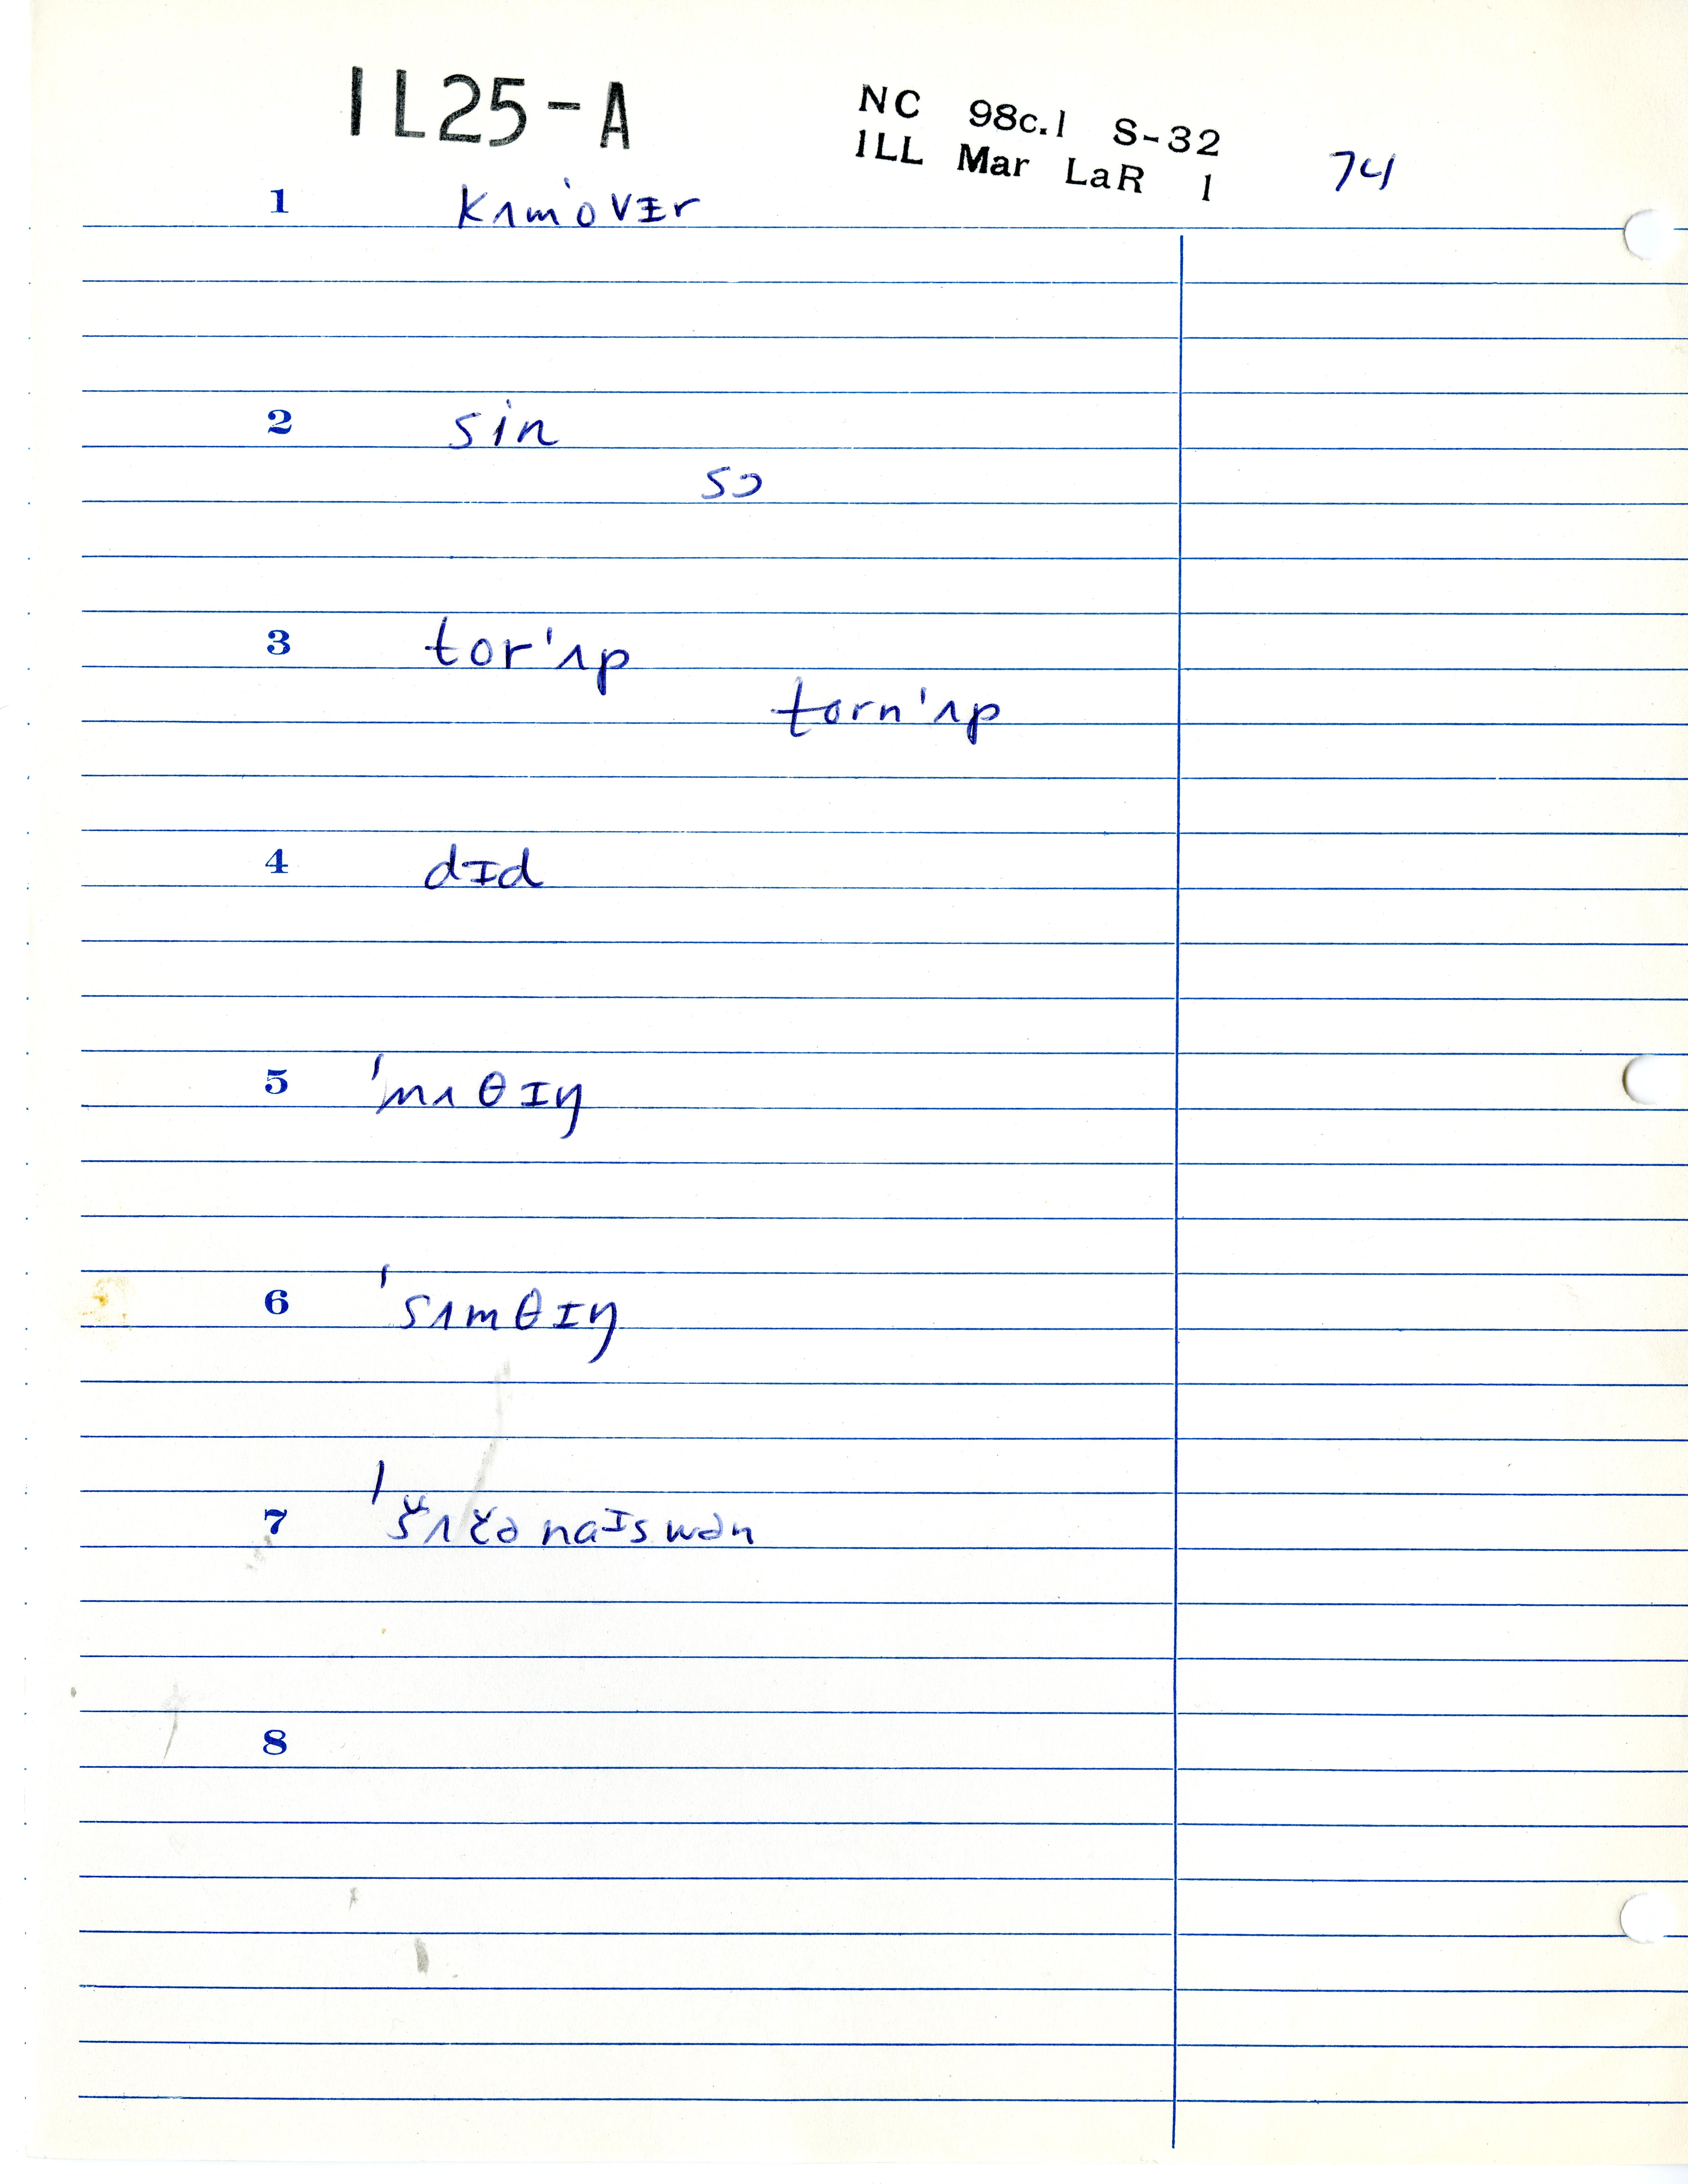 IL25-A
NC 98c.1 S-32
ILL Mar LaR 1
74
1 kʌm'ovɪr
2 sin
sɔ
3 tor'ʌp
torn'ʌp
4 dɪd
5 'nʌθɪŋ
6 'sʌmθɪŋ
7 'šʌčə naɪs wən
8